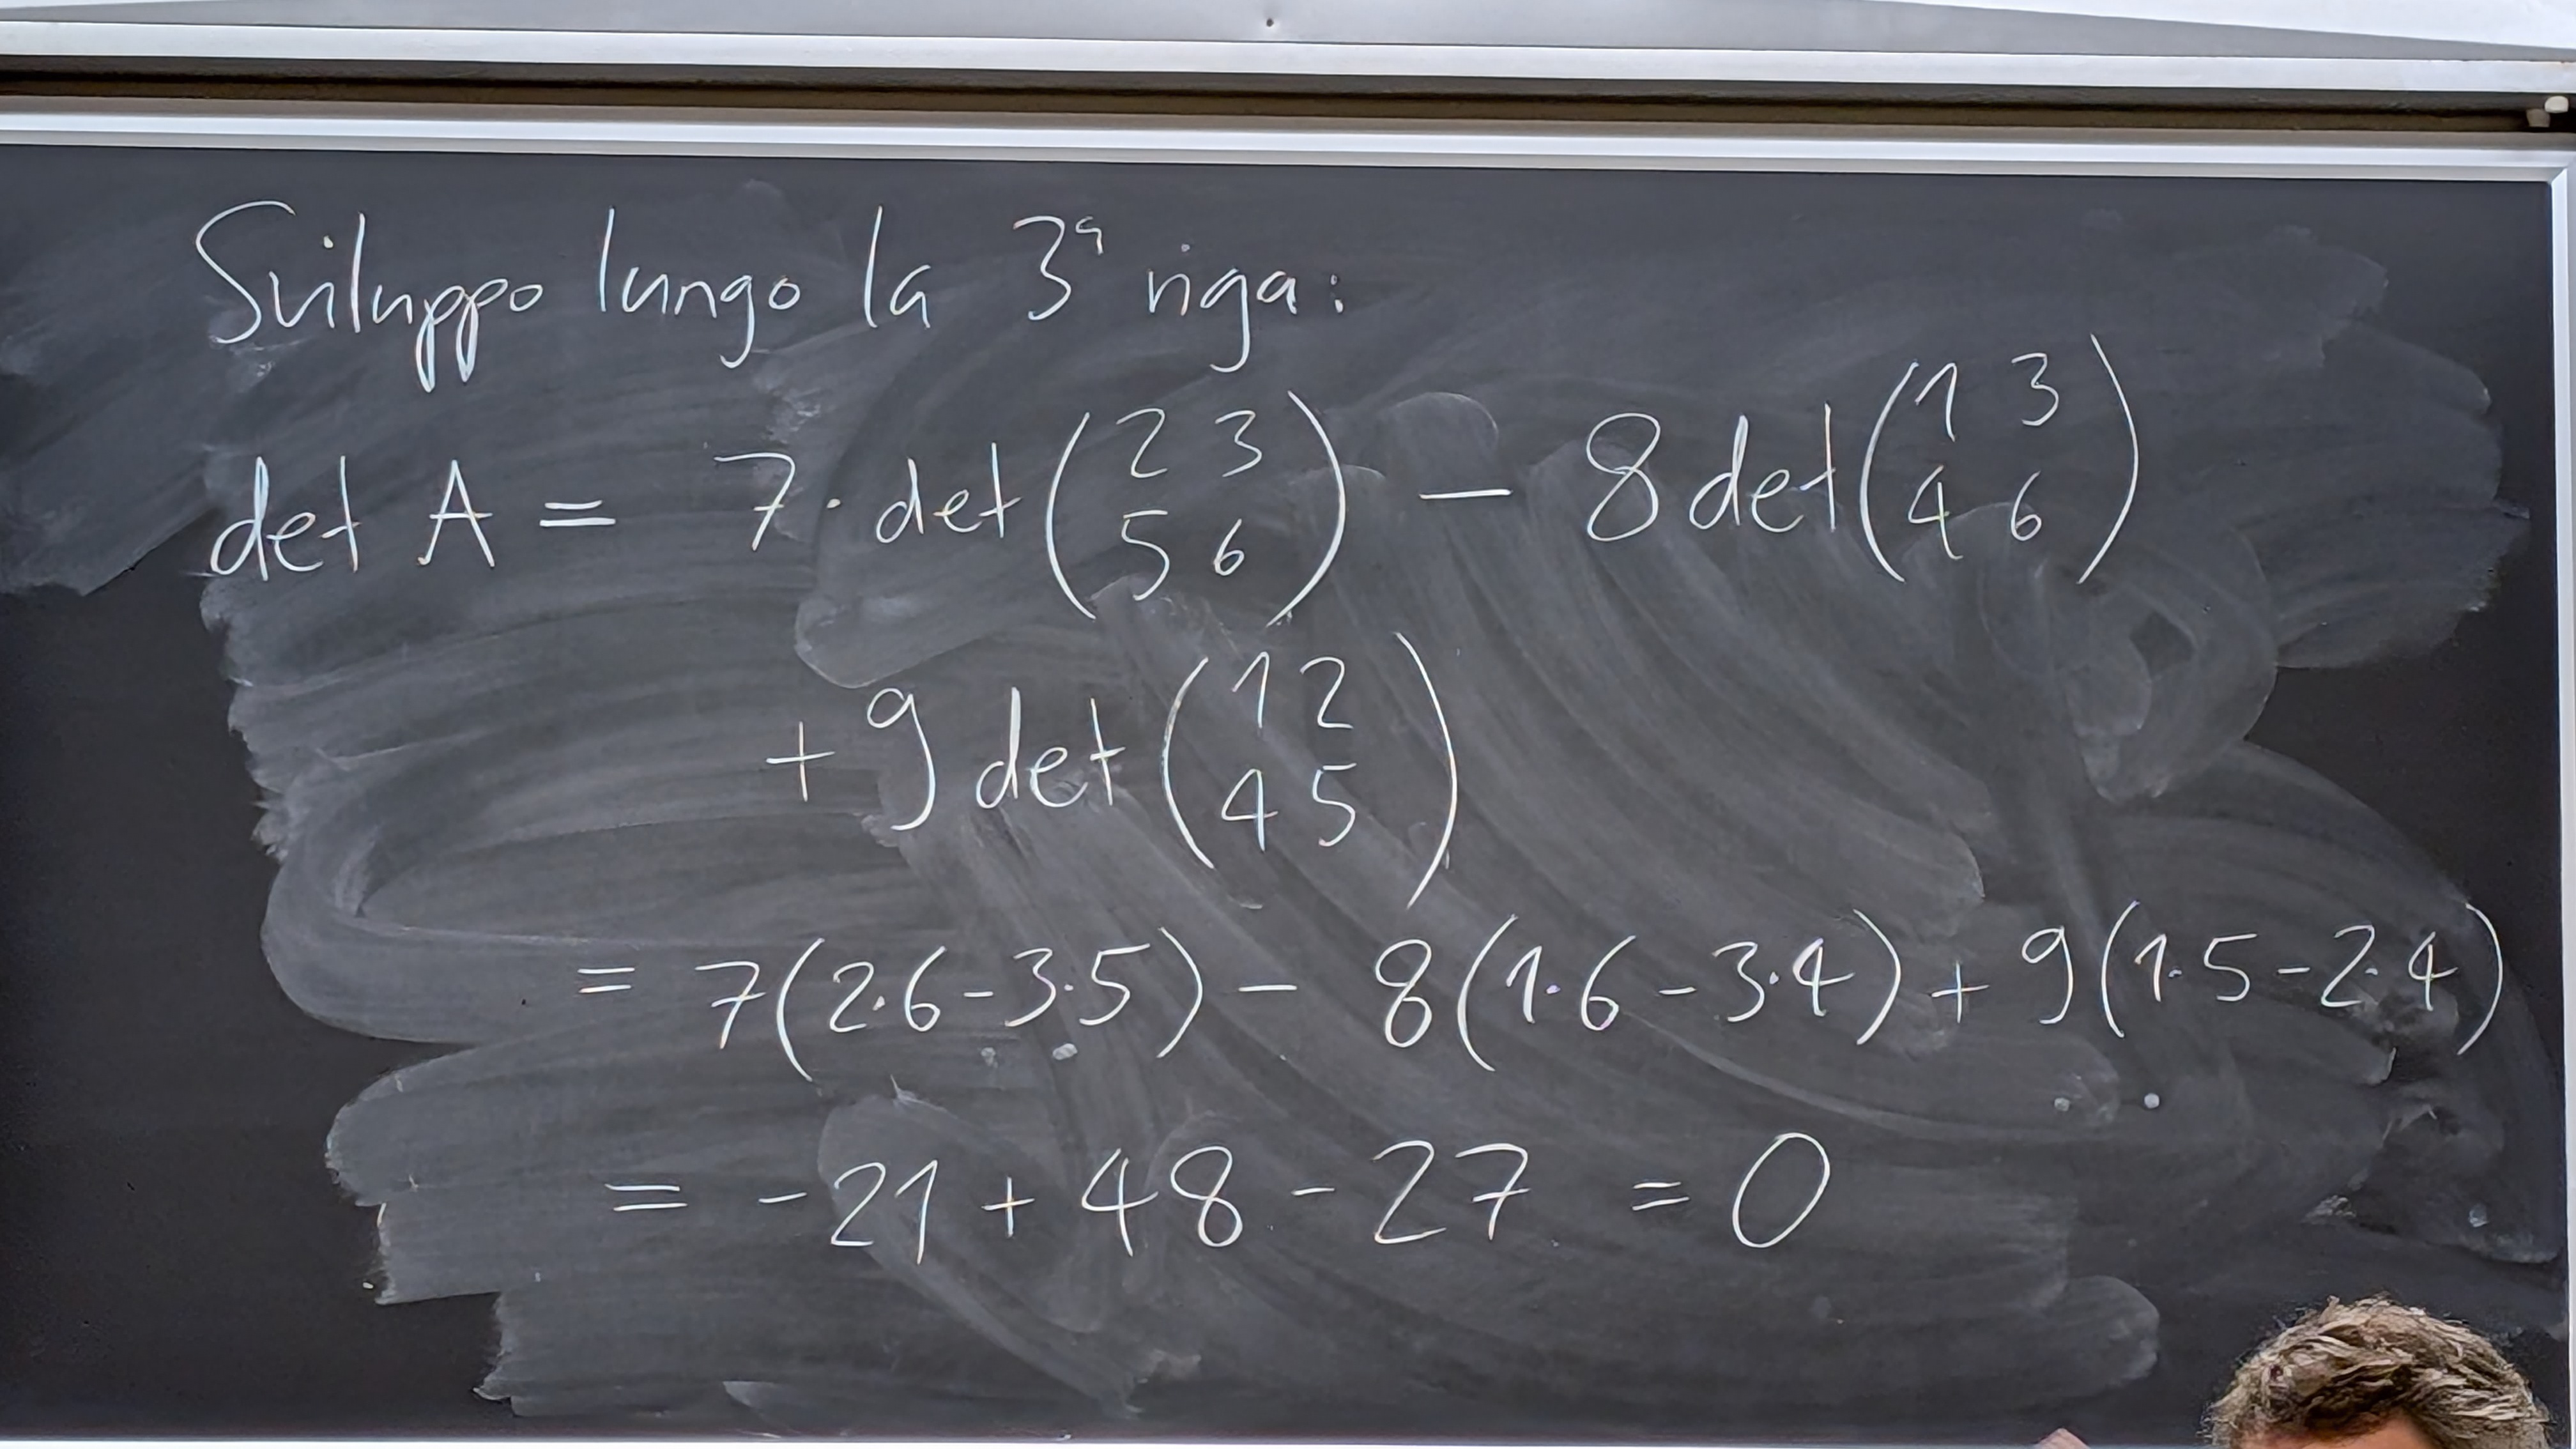 Sviluppo lungo la 3ª riga:
det A = 7 · det (2 3; 5 6) − 8 det (1 3; 4 6)
+ 9 det (1 2; 4 5)
= 7(2·6 − 3·5) − 8(1·6 − 3·4) + 9(1·5 − 2·4)
= −21 + 48 − 27 = 0